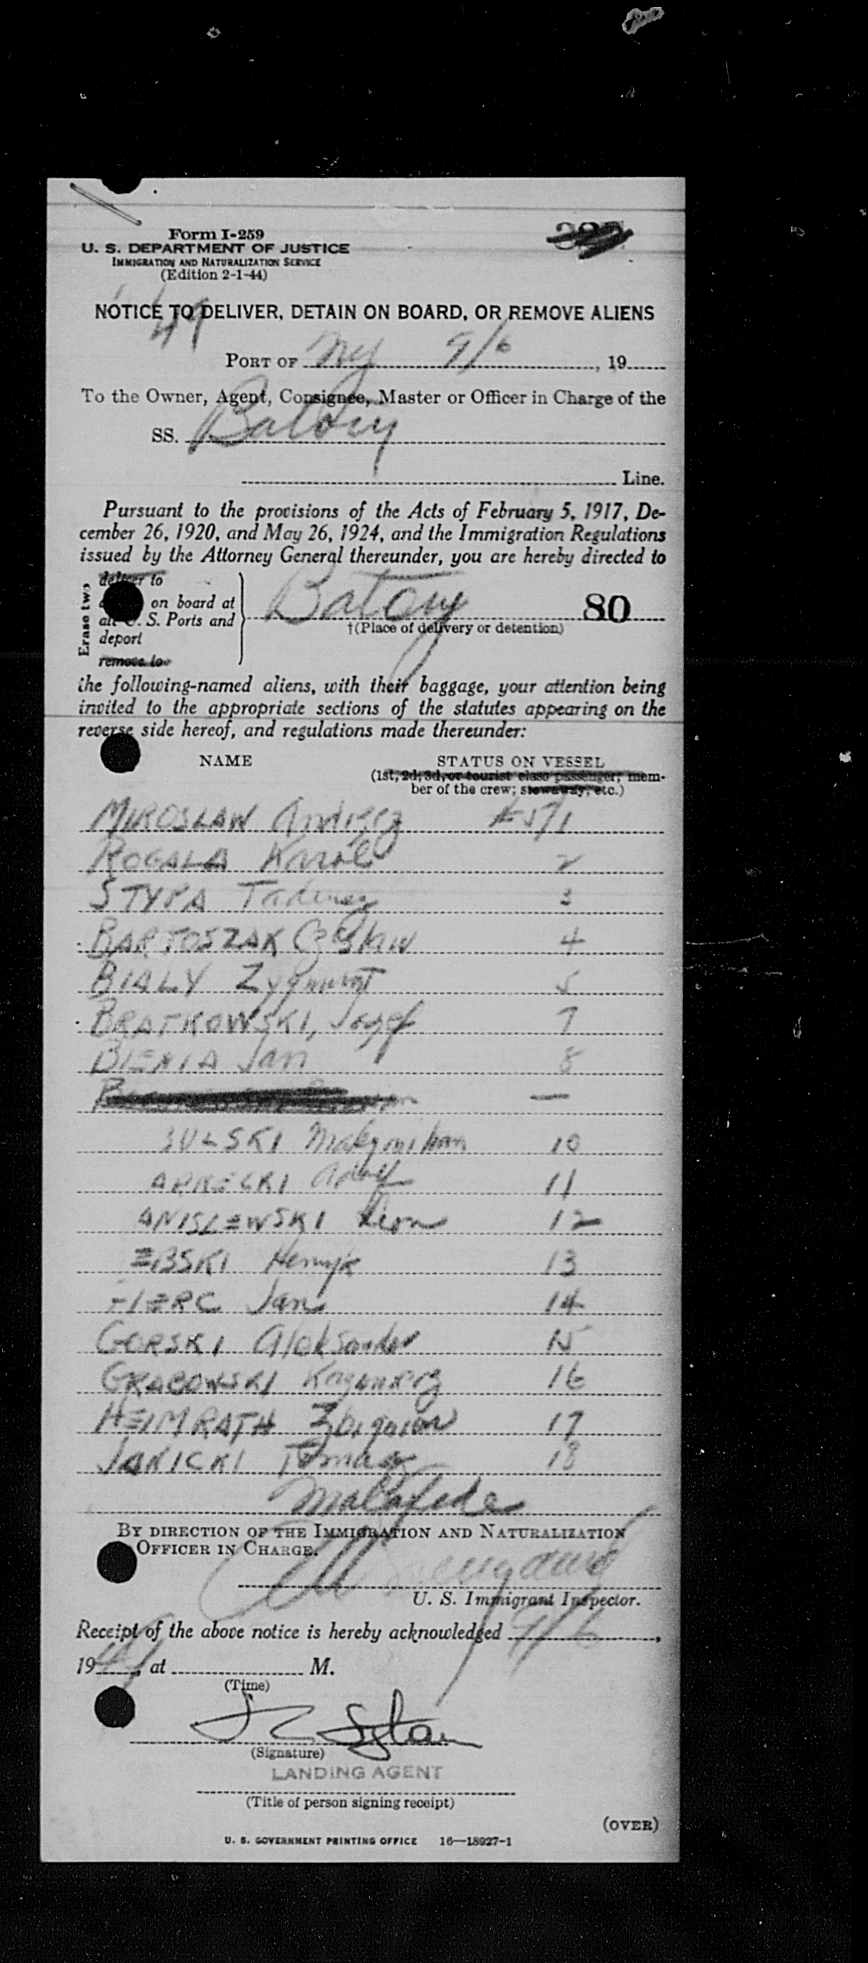 Form I-259
U. S. DEPARTMENT OF JUSTICE
IMMIGRATION AND NATURALIZATION SERVICE
(Edition 2-1-44)
NOTICE TO DELIVER, DETAIN ON BOARD, OR REMOVE ALIENS
49
PORT OF NY 9/6, 19
To the Owner, Agent, Consignee, Master or Officer in Charge of the
SS. Batory
Line.
Pursuant to the provisions of the Acts of February 5, 1917, De-
cember 26, 1920, and May 26, 1924, and the Immigration Regulations
issued by the Attorney General thereunder, you are hereby directed to
Erase two
deliver to
on board at
all U. S. Ports and
deport
remove to
Batory 80
†(Place of delivery or detention)
the following-named aliens, with their baggage, your attention being
invited to the appropriate sections of the statutes appearing on the
reverse side hereof, and regulations made thereunder:
NAME STATUS ON VESSEL
(1st, 2d, 3d, or tourist class passenger; mem-
ber of the crew; stowaway, etc.)
MIROSLAW Andrzej 1
ROGALA Karol 2
STYPA Tadeusz 3
BARTOSZAK Czeslaw 4
BIALY Zygmunt 5
BRATKOWSKI, Jozef 7
BLENIA Jan 8
—
BULSKI 10
11
ANISLEWSKI Leon 12
EBSKI Henryk 13
FIERC Jan 14
GORSKI Aleksander 15
GRABOWSKI Kazimierz 16
HEIMRATH Zbigniew 17
JANICKI Tomasz 18
Malafide
BY DIRECTION OF THE IMMIGRATION AND NATURALIZATION
OFFICER IN CHARGE.
U. S. Immigrant Inspector.
Receipt of the above notice is hereby acknowledged 9/6,
1949, at M.
(Time)
(Signature)
LANDING AGENT
(Title of person signing receipt)
(OVER)
U. S. GOVERNMENT PRINTING OFFICE 16—18927-1